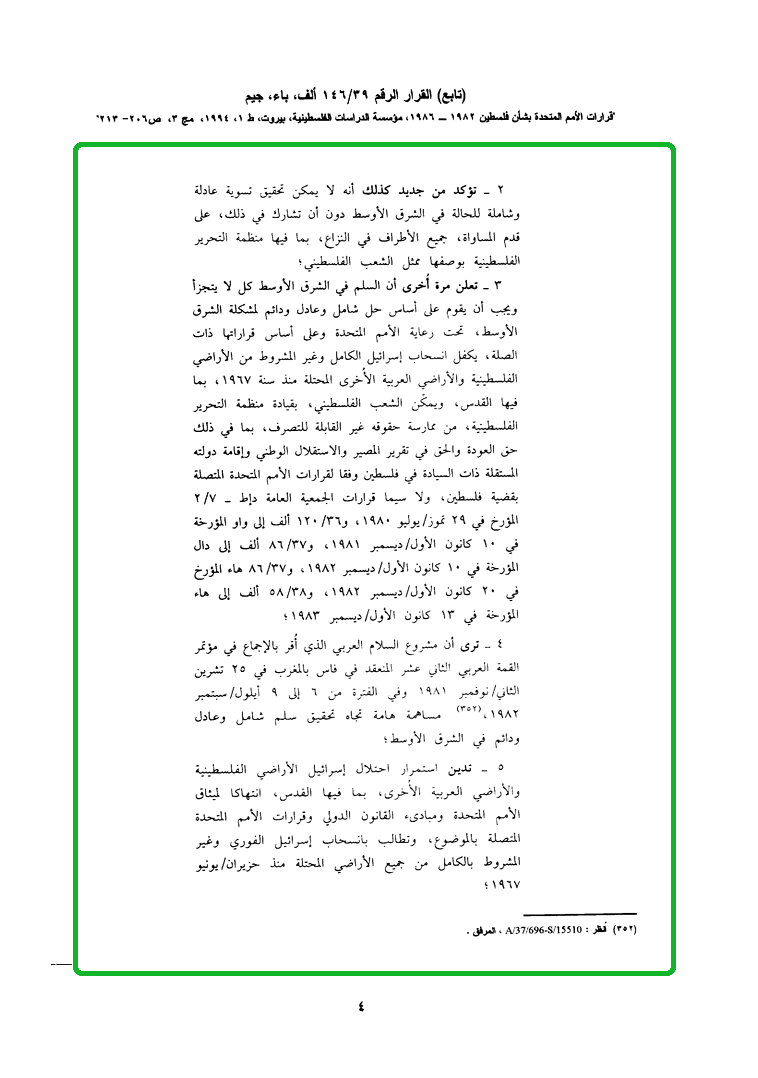 (تابع) القرار الرقم ١٤٦/٣٩ ألف، باء، جيم
"قرارات الأمم المتحدة بشأن فلسطين ١٩٨٢ ــ ١٩٨٦، مؤسسة الدراسات الفلسطينية، بيروت، ط ١، ١٩٩٤، مج ٣، ص٢٠٦- ٢١٣"
٢ ـ تؤكد من جديد كذلك أنه لا يمكن تحقيق تسوية عادلة
وشاملة للحالة في الشرق الأوسط دون أن تشارك في ذلك، على
قدم المساواة، جميع الأطراف في النزاع، بما فيها منظمة التحرير
الفلسطينية بوصفها ممثل الشعب الفلسطيني؛
٣ ـ تعلن مرة أُخرى أن السلم في الشرق الأوسط كل لا يتجزأ
ويجب أن يقوم على أساس حل شامل وعادل ودائم لمشكلة الشرق
الأوسط، تحت رعاية الأمم المتحدة وعلى أساس قراراتها ذات
الصلة، يكفل انسحاب إسرائيل الكامل وغير المشروط من الأراضي
الفلسطينية والأراضي العربية الأُخرى المحتلة منذ سنة ١٩٦٧، بما
فيها القدس، ويمكّن الشعب الفلسطيني، بقيادة منظمة التحرير
الفلسطينية، من ممارسة حقوقه غير القابلة للتصرف، بما في ذلك
حق العودة والحق في تقرير المصير والاستقلال الوطني وإقامة دولته
المستقلة ذات السيادة في فلسطين وفقا لقرارات الأمم المتحدة المتصلة
بقضية فلسطين، ولا سيما قرارات الجمعية العامة دإط ـ ٢/٧
المؤرخ في ٢٩ تموز/يوليو ١٩٨٠، و١٢٠/٣٦ ألف إلى واو المؤرخة
في ١٠ كانون الأول/ديسمبر ١٩٨١، و٨٦/٣٧ ألف إلى دال
المؤرخة في ١٠ كانون الأول/ديسمبر ١٩٨٢، و٨٦/٣٧ هاء المؤرخ
في ٢٠ كانون الأول/ديسمبر ١٩٨٢، و٥٨/٣٨ ألف إلى هاء
المؤرخة في ١٣ كانون الأول/ديسمبر ١٩٨٣؛
٤ ـ ترى أن مشروع السلام العربي الذي أُقر بالإجماع في مؤتمر
القمة العربي الثاني عشر المنعقد في فاس بالمغرب في ٢٥ تشرين
الثاني/نوفمبر ١٩٨١ وفي الفترة من ٦ إلى ٩ أيلول/سبتمبر
١٩٨٢،(٣٥٢) مساهمة هامة تجاه تحقيق سلم شامل وعادل
ودائم في الشرق الأوسط؛
٥ ـ تدين استمرار احتلال إسرائيل الأراضي الفلسطينية
والأراضي العربية الأُخرى، بما فيها القدس، انتهاكا لميثاق
الأمم المتحدة ومبادىء القانون الدولي وقرارات الأمم المتحدة
المتصلة بالموضوع، وتطالب بانسحاب إسرائيل الفوري وغير
المشروط بالكامل من جميع الأراضي المحتلة منذ حزيران/يونيو
١٩٦٧؛
(٣٥٢) أُنظر : A/37/696-S/15510 ، المرفق .
٤